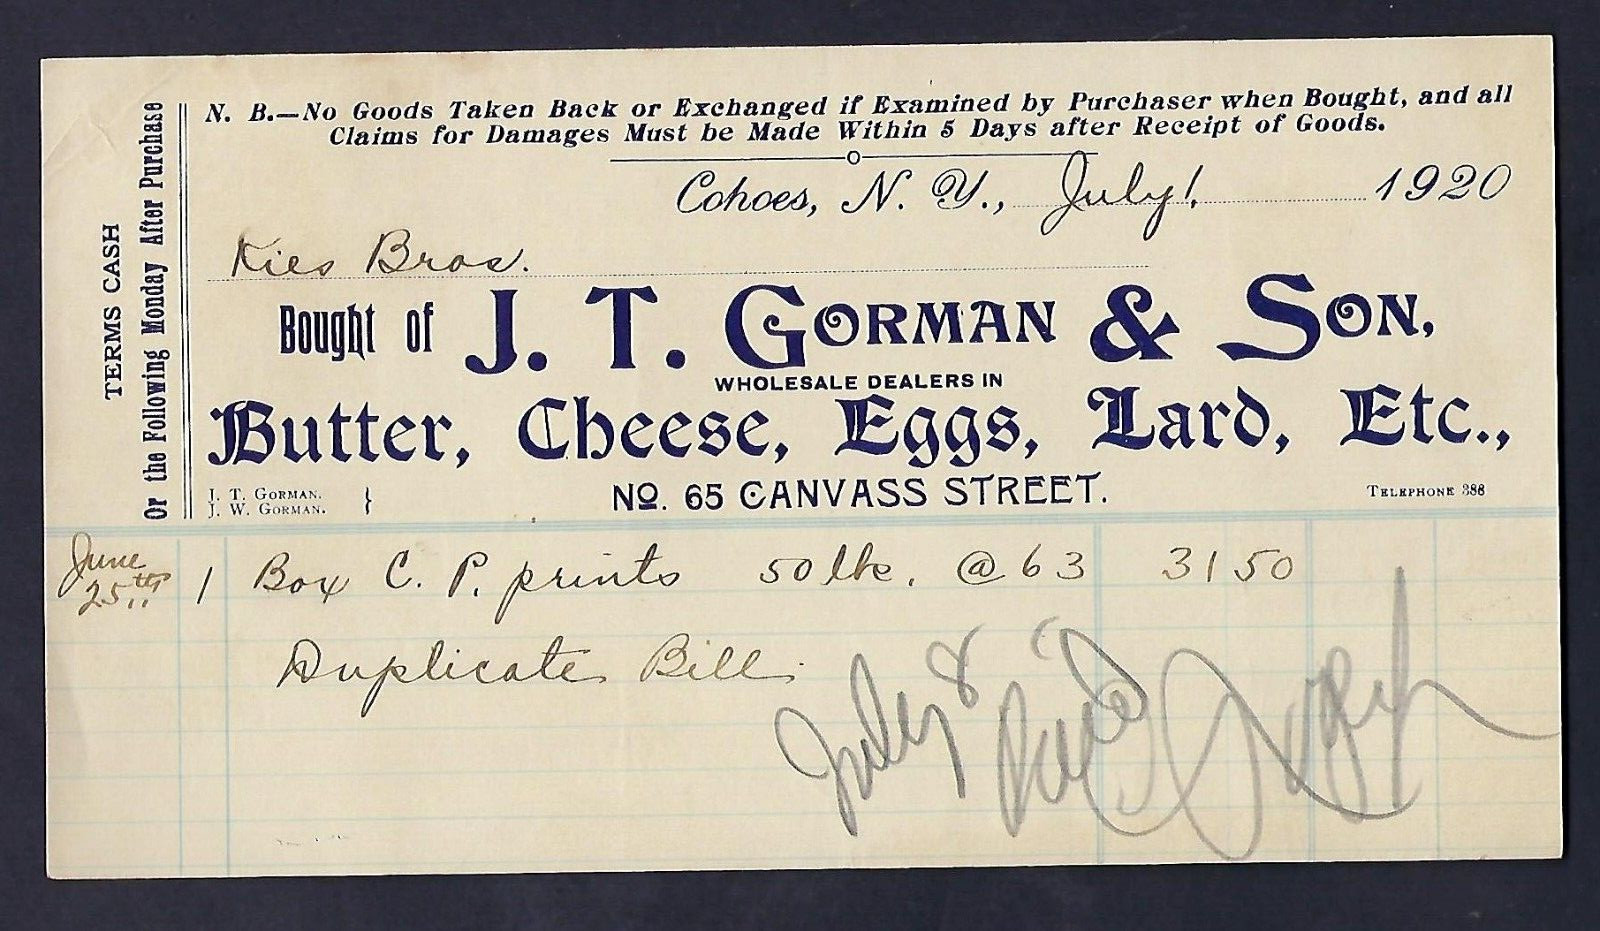 N. B.—No Goods Taken Back or Exchanged if Examined by Purchaser when Bought, and all
Claims for Damages Must be Made Within 5 Days after Receipt of Goods.
Cohoes, N. Y., July 1, 1920
Kies Bros.
TERMS CASH
Or the Following Monday After Purchase
Bought of J. T. GORMAN & SON,
WHOLESALE DEALERS IN
Butter, Cheese, Eggs, Lard, Etc.,
J. T. GORMAN.
J. W. GORMAN. }
No. 65 CANVASS STREET.
TELEPHONE 388
June 25th 1 Box C. P. prints 50 lbs. @ 63 31 50
Duplicate Bill.
July 8